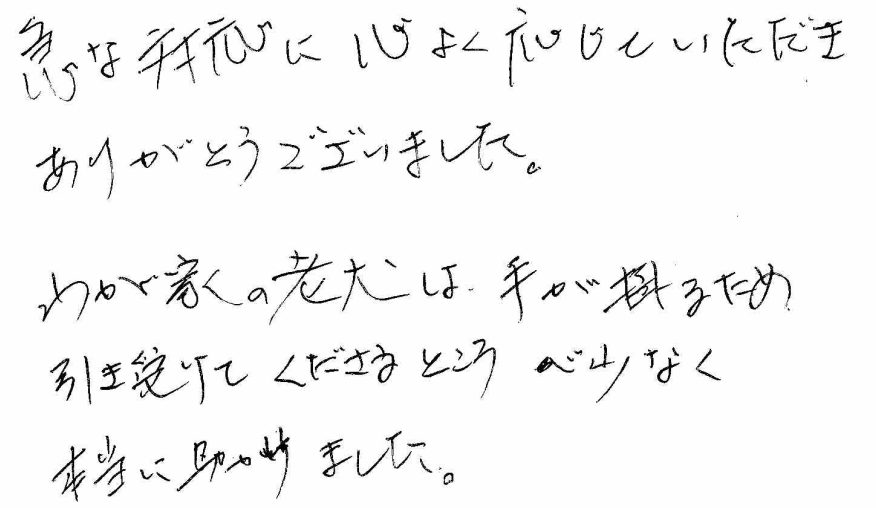 急な対応に心よく応じていただき
ありがとうございました。
わが家の老犬は手が掛るため
引き受けてくださるところが少なく
本当に助かりました。